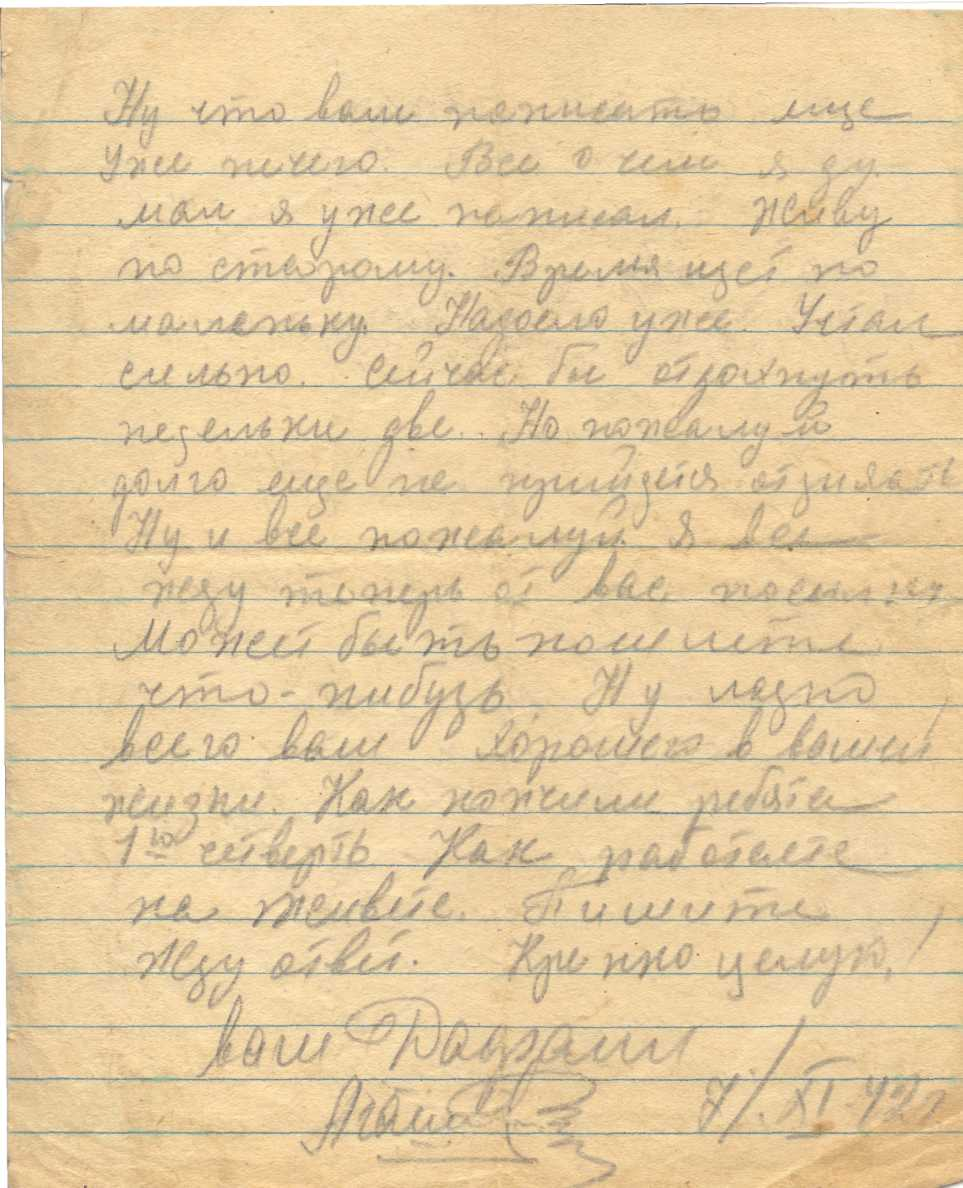 Ну что вам написать еще
уже нечего. Все о чем я ду
мал я уже написал. Живу
по старому. Время идет по
маленьку. Надоело уже. Устал
сильно. Сейчас бы отдохнуть
недельки две. Но пожалуй
долго еще не прийдется отдыхать
Ну и все пожалуй. Я все
жду теперь от вас посылки
Может быть пошлете
что-нибудь. Ну ладно
всего вам хорошего в вашей
жизни. Как кончили ребята
1ю четверть Как работаете
на живете. Пишите
Жду ответ. Крепко целую,
ваш
7/XI 42г